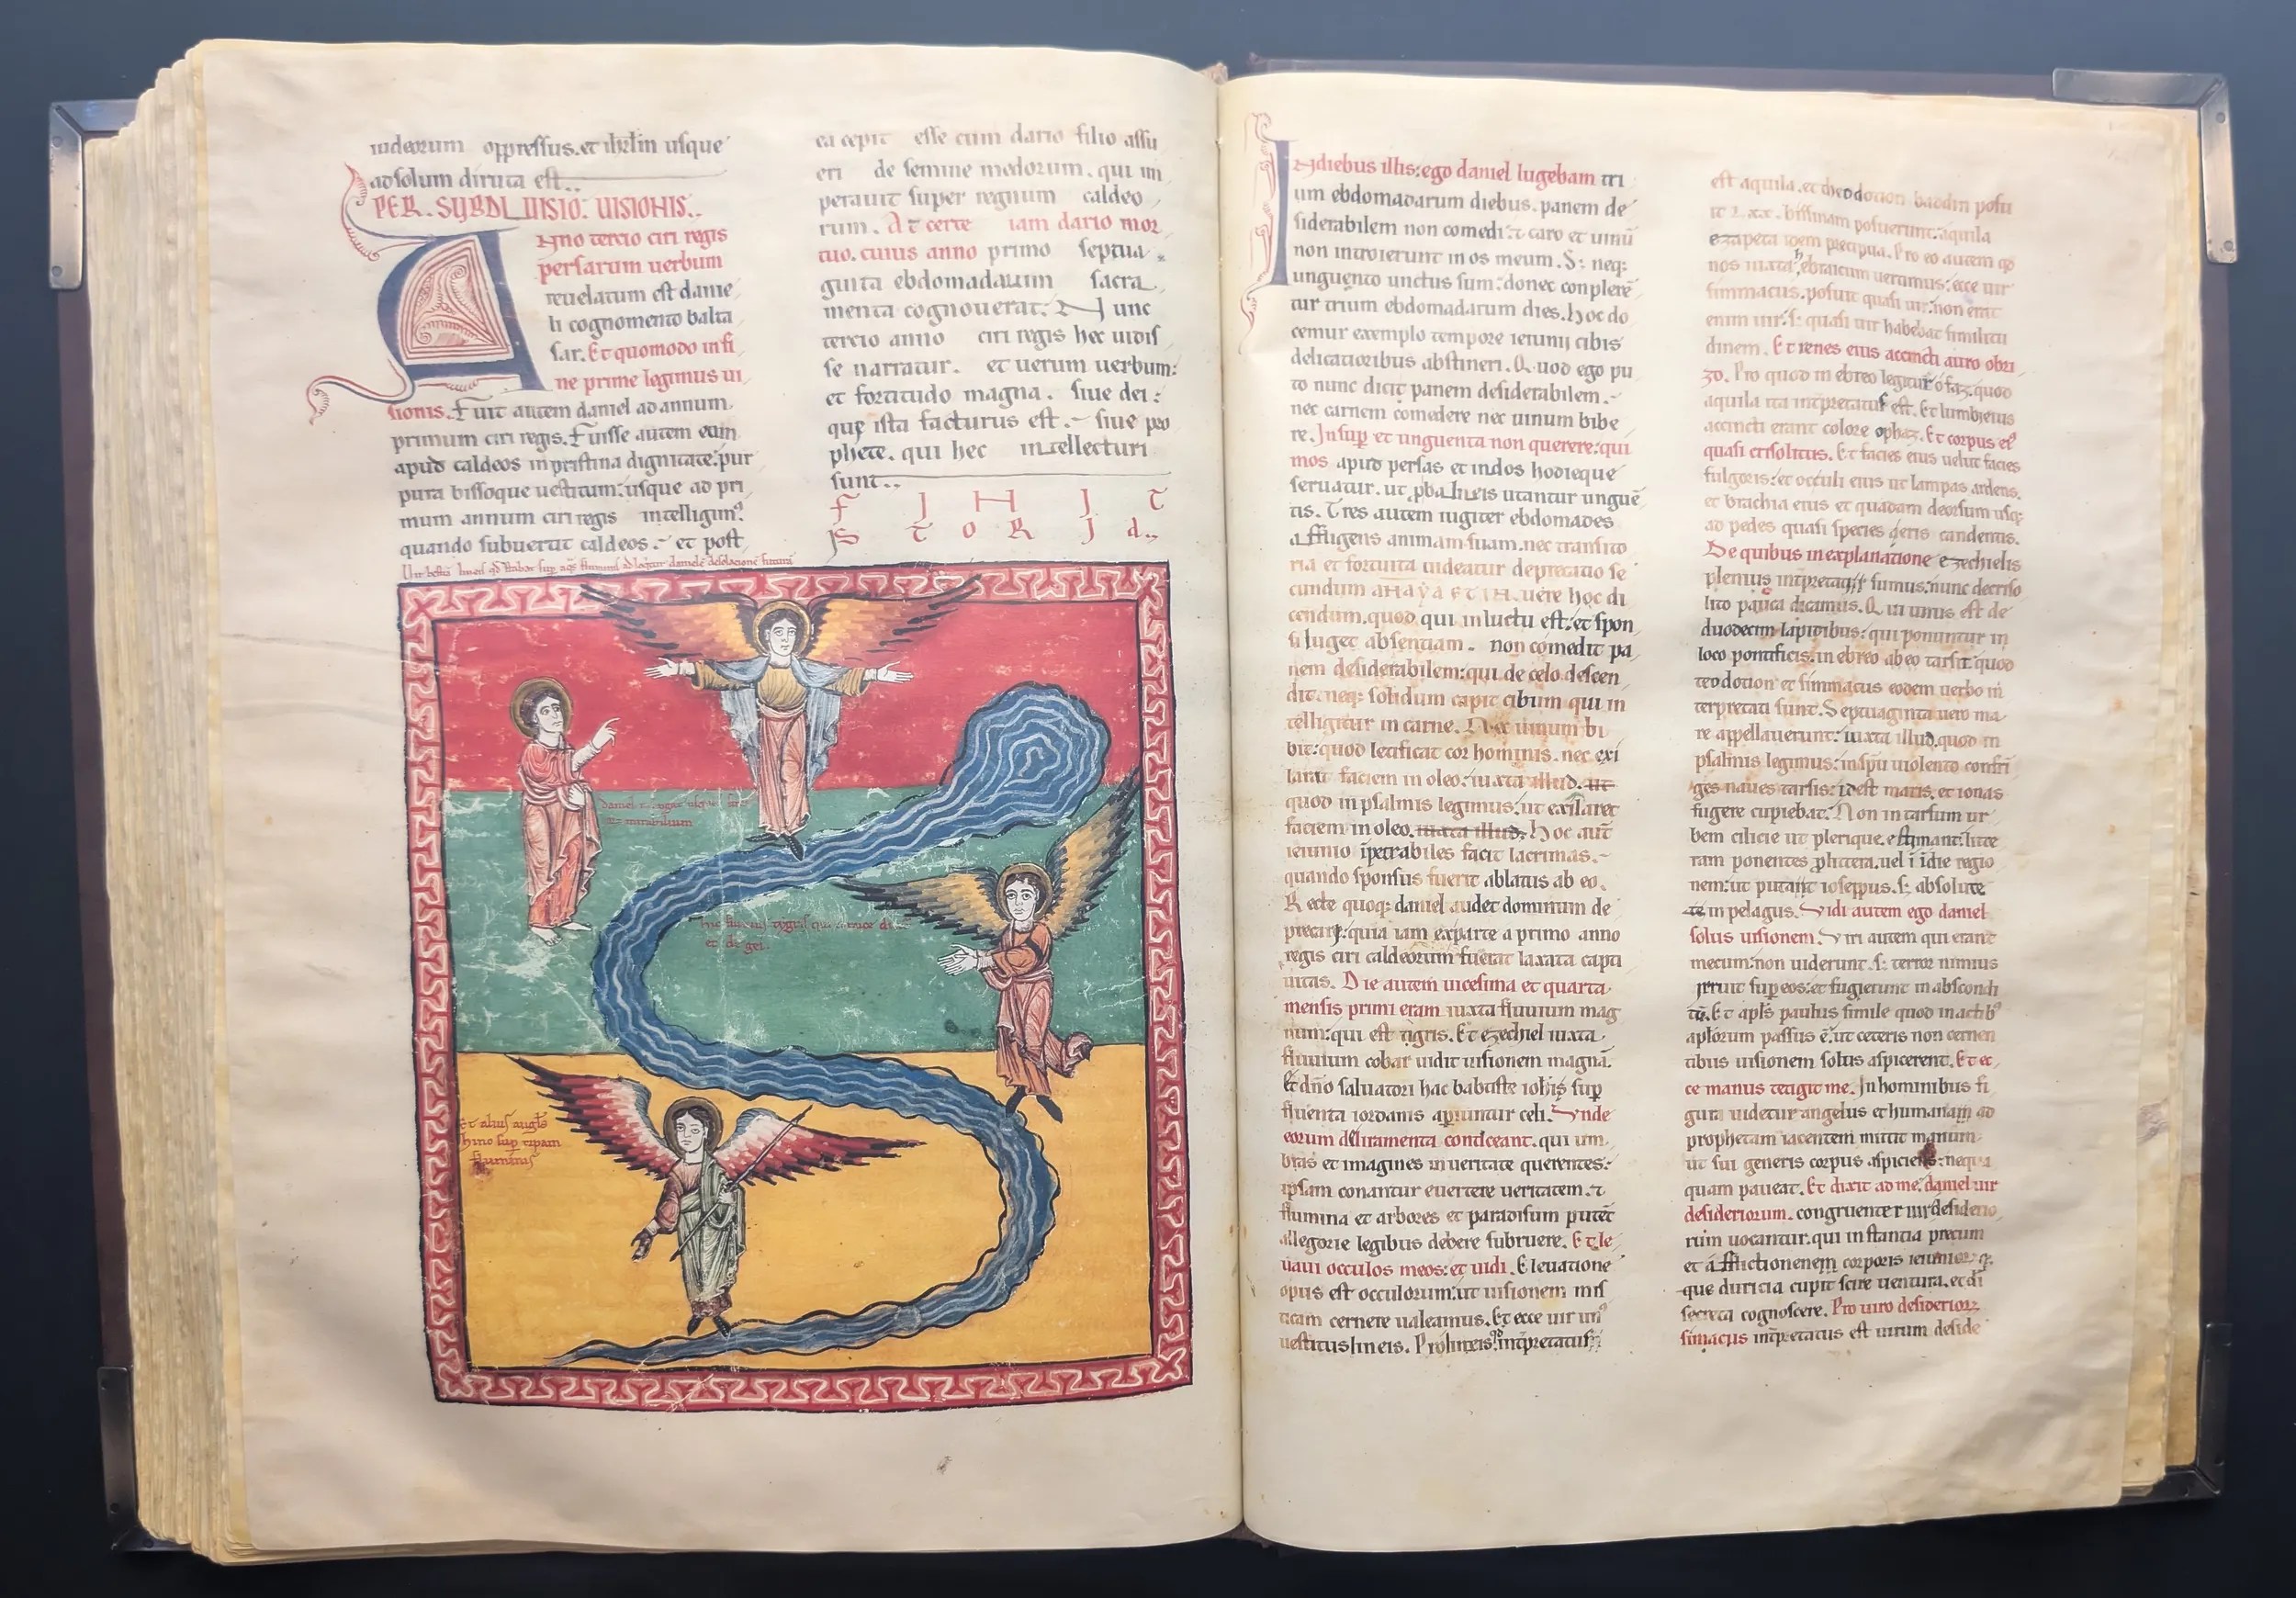 iudeorum oppressus. et ihrl'm usque
ad solum diruta est..
PER. SYBDI UISIO: UISIONIS..
Anno tercio ciri regis
persarum uerbum
reuelatum est danie
li cognomento balta
sar. Et quomodo in fi
ne prime legimus ui
sionis. Fuit autem daniel ad annum
primum ciri regis. Fuisse autem eum
apud caldeos in pristina dignitate: pur
pura bissoque uestitum: usque ad pri
mum annum ciri regis intelligim9
quando subuertit caldeos. et post
ea cepit esse cum dario filio assu
eri de semine medorum. qui im
perauit super regnum caldeo
rum. At certe iam dario mor
tuo. cuius anno primo septua
ginta ebdomadarum sacra
menta cognouerat. Nunc
tercio anno ciri regis hec uidis
se narratur. et uerum uerbum:
et fortitudo magna. siue dei:
que ista facturus est. siue pro
phete. qui hec intellecturi
sunt..
F I N I T
S T O R I A..
daniel
mirabilium
hic fluuius tygris
Et alius angls
hinc sup ripam
fluminis
In diebus illis: ego daniel lugebam tri
um ebdomadarum diebus. panem de
siderabilem non comedi: et caro et uinū
non introierunt in os meum. S: neq:
unguento unctus sum: donec conplerē
tur trium ebdomadarum dies. Hoc do
cemur exemplo tempore ieiunij cibis
delicatioribus abstineri. Quod ego pu
to nunc dicit panem desiderabilem.
nec carnem comedere nec uinum bibe
re. Insup et unguenta non querere: qui
mos apud persas et indos hodieque
seruatur. ut balneis utantur unguē
tis. Tres autem iugiter ebdomades
affligens animam suam. nec transito
ria et fortuita uideatur deprecatio se
cundum uere hoc di
cendum. quod qui in luctu est: et spon
si luget absentiam. non comedit pa
nem desiderabilem: qui de celo descen
dit: neq: solidum capit cibum qui in
telligitur in carne. Nec uinum bi
bit: quod letificat cor hominis. nec exi
larat faciem in oleo: iuxta illud. ut
quod in psalmis legimus: ut exilaret
faciem in oleo. iuxta illud. Hoc aut
ieiunio īpetrabiles facit lacrimas.
quando sponsus fuerit ablatus ab eo.
Recte quoq: daniel audet dominum de
precari: quia iam ex parte a primo anno
regis ciri caldeorum fuerat laxata capti
uitas. Die autem uicesima et quarta
mensis primi eram iuxta fluuium mag
num: qui est tigris. Et ezechiel iuxta
fluuium cobar uidit uisionem magnā.
Et dno saluatori hac babtiste iohis sup
fluenta iordanis apriuntur celi. Unde
eorum deliramenta conticeant. qui um
bras et imagines in ueritate querentes:
ipsam conantur euertere ueritatem. et
flumina et arbores et paradisum putēt
allegorie legibus debere subruere. Et le
uaui occulos meos: et uidi. Eleuatione
opus est occulorum: ut uisionem mis
ticam cernere ualeamus. Et ecce uir un9
uestitus lineis. Pro lineis intpretatus
est aquila. et theodotion baddin posu
it. Lxx. bissinam posuerunt: aquila
precipua. Pro eo autem qd
nos iuxta hebraicum uertimus: ecce uir
simmacus. posuit quasi uir. non erat
enim uir. S: quasi uir habebat similitu
dinem. Et renes eius accincti auro obri
zo. Pro quod in ebreo legitur ofaz. quod
aquila ita intpretatus est. Et lumbi eius
accincti erant colore ophaz. Et corpus ei9
quasi crisolitus. Et facies eius uelut facies
fulgoris: et occuli eius ut lampas ardens.
et brachia eius et quadam deorsum usq:
ad pedes quasi species aeris candentis.
De quibus in explanatione ezechielis
plenius intpretati sumus: nunc decriso
lito pauca dicamus. Qui unus est de
duodecim lapidibus: qui ponuntur in
loco pontificis. in ebreo ab eo tarsit quod
teodotion et simmacus eodem uerbo in
terpretati sunt. Septuaginta uero ma
re appellauerunt: iuxta illud. quod in
psalmis legimus: in spu uiolento confri
ges naues tarsis: id est maris. et ionas
fugere cupiebat. Non in tarsum ur
bem cilicie ut plerique estimant: lite
ram ponentes p litera. uel ī idie regio
nem: ut putat iosephus. s: absolute
in pelagus. Vidi autem ego daniel
solus uisionem. Viri autem qui erant
mecum: non uiderunt. s: terror nimius
irruit sup eos: et fugierunt in abscondi
tū. Et apls paulus simile quod in actib9
aplorum passus ē. ut ceteris non cernen
tibus uisionem solus aspicerent. Et ec
ce manus tetigit me. In hominibus fi
gura uidetur angelus et humanam ad
prophetam iacentem mittit manum
ut sui generis corpus aspiciens: nequa
quam paueat. Et dixit ad me. daniel uir
desideriorum. congruenter uir desiderio
rum uocantur. qui instantia precum
et afflictionenem corporis ieiunior q
que duricia cupit scire uentura. et di
secreta cognoscere. Pro uiro desiderior
simacus intpretatus est uirum deside